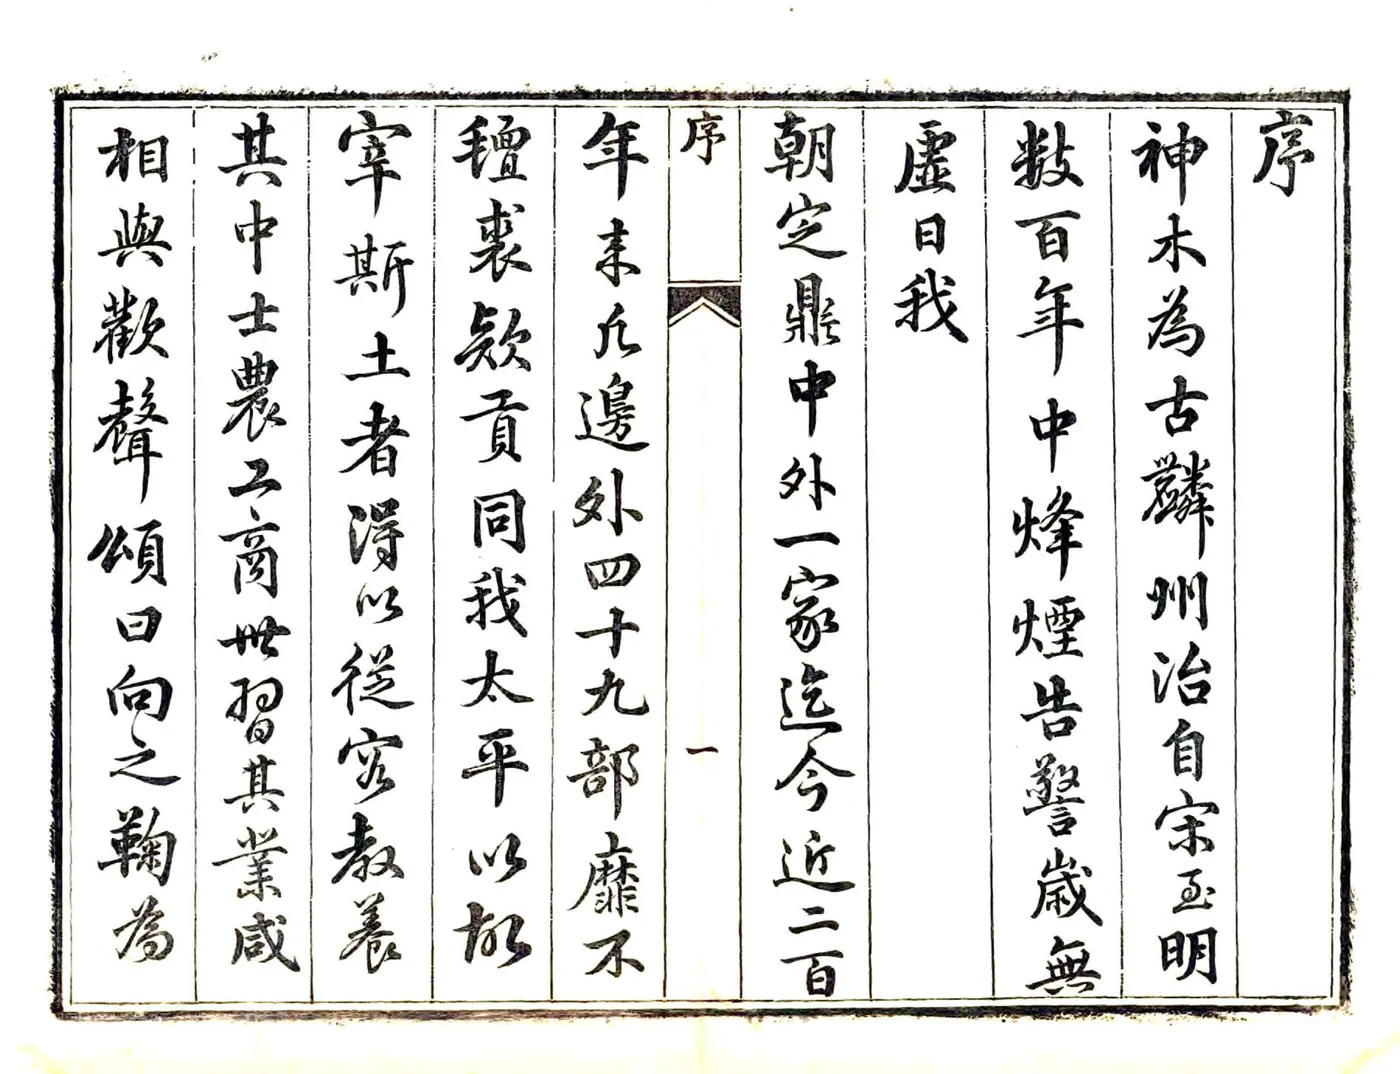 序
神木為古麟州治自宋至明
数百年中烽煙告警歲無
虛日我
朝定鼎中外一家迄今近二百
序
一
年来凡邊外四十九部靡不
氊裘欵貢同我太平以故
宰斯土者得以從容教養
其中士農工商世習其業咸
相與歡聲頌曰向之鞠為